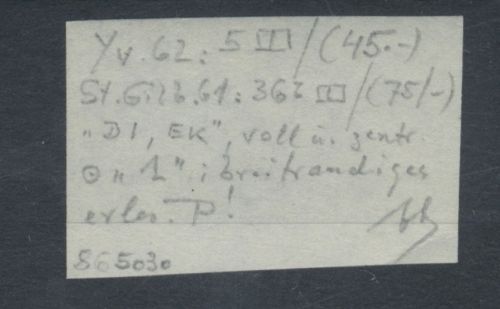 Yv. 62: 5 / (45.-)
St. Gib. 61: 36b / (75/-)
„DI, EK", voll u. zentr.
"1" ; breitrandiges
erles. P!
865030